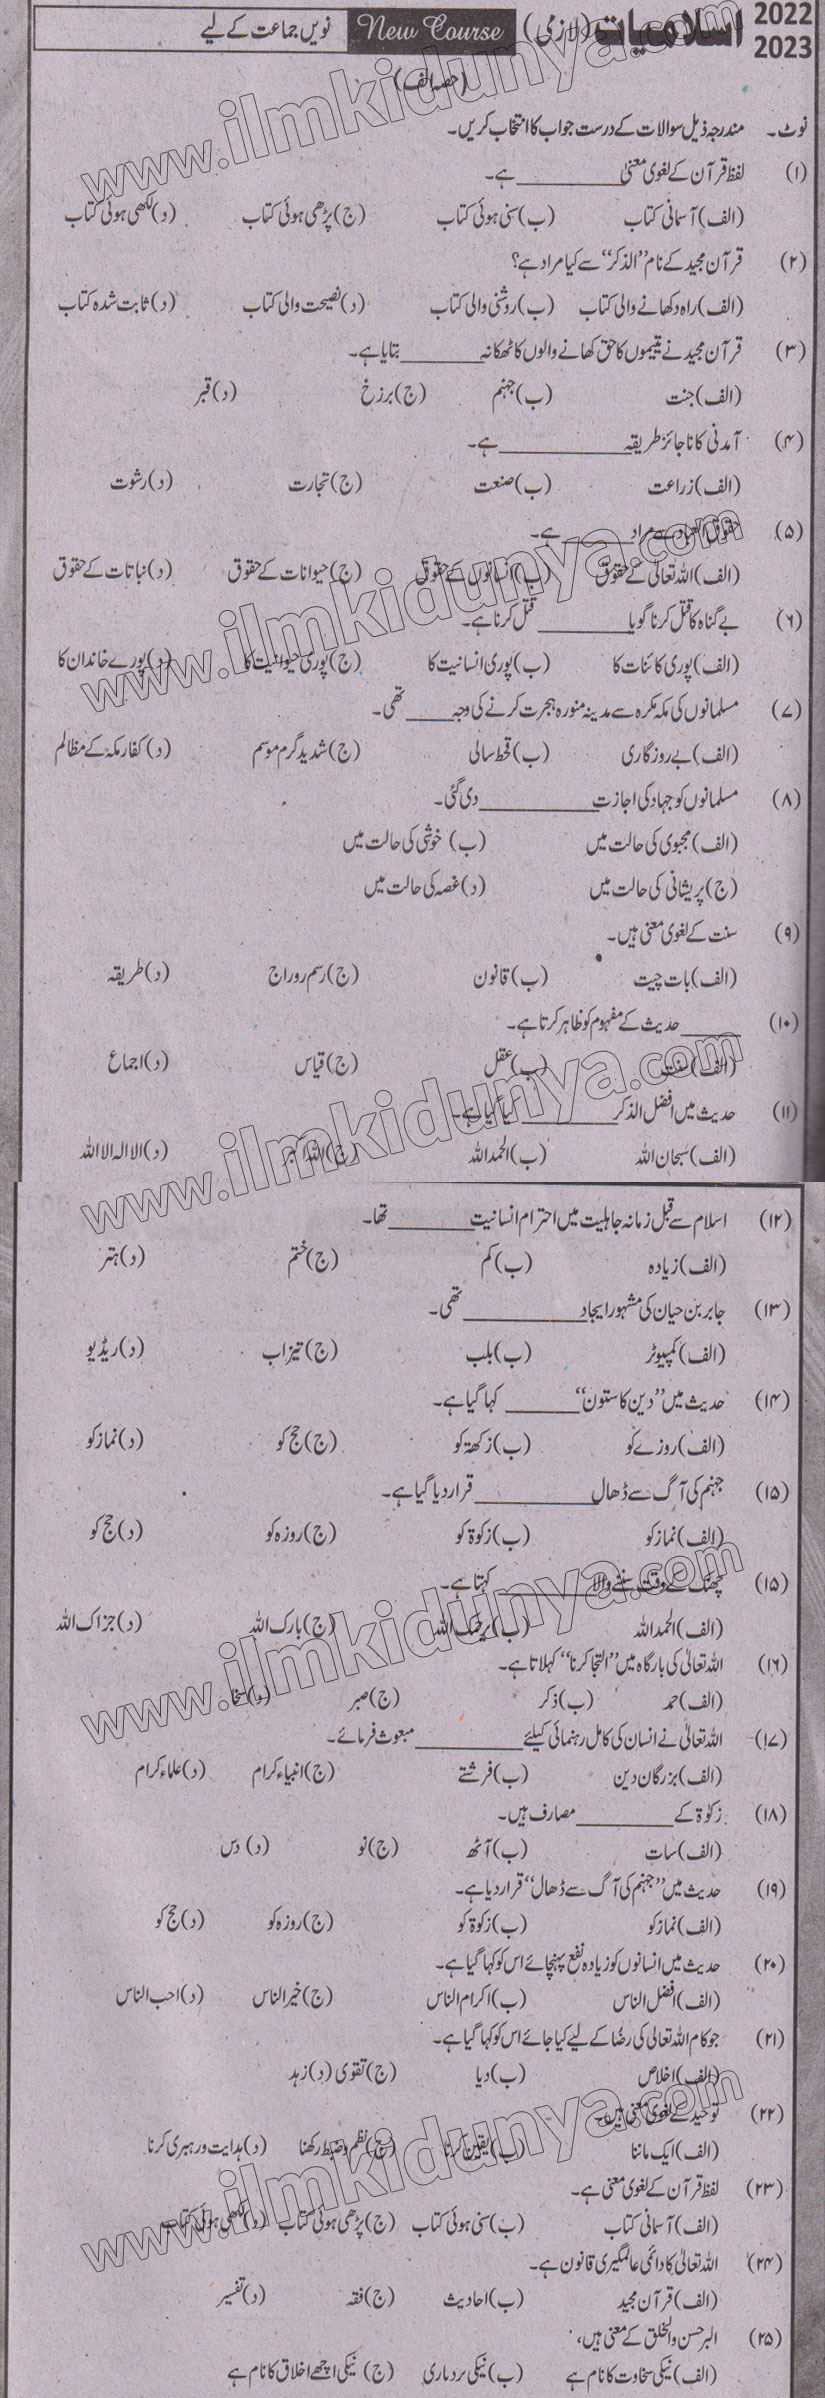 اسلامیات (لازمی) New Course نویں جماعت کے لیے
2022
2023
(حصہ الف)
نوٹ۔ مندرجہ ذیل سوالات کے درست جواب کا انتخاب کریں۔
(۱) لفظ قرآن کے لغوی معنی ________ ہے۔
(الف) آسمانی کتاب (ب) سنی ہوئی کتاب (ج) پڑھی ہوئی کتاب (د) لکھی ہوئی کتاب
(۲) قرآن مجید کے نام "الذکر" سے کیا مراد ہے؟
(الف) راہ دکھانے والی کتاب (ب) روشنی والی کتاب (د) نصیحت والی کتاب (د) ثابت شدہ کتاب
(۳) قرآن مجید نے یتیموں کا حق کھانے والوں کا ٹھکانہ ________ بتایا ہے۔
(الف) جنت (ب) جہنم (ج) برزخ (د) قبر
(۴) آمدنی کا ناجائز طریقہ ________ ہے۔
(الف) زراعت (ب) صنعت (ج) تجارت (د) رشوت
(۵) حقوق العباد سے مراد ________ ہے۔
(الف) اللہ تعالیٰ کے حقوق (ب) انسانوں کے حقوق (ج) حیوانات کے حقوق (د) نباتات کے حقوق
(۶) بے گناہ کا قتل کرنا گویا ________ قتل کرنا ہے۔
(الف) پوری کائنات کا (ب) پوری انسانیت کا (ج) پوری حیوانیت کا (د) پورے خاندان کا
(۷) مسلمانوں کی مکہ مکرہ سے مدینہ منورہ ہجرت کرنے کی وجہ ____ تھی۔
(الف) بے روزگاری (ب) قحط سالی (ج) شدید گرم موسم (د) کفار مکہ کے مظالم
(۸) مسلمانوں کو جہاد کی اجازت ________ دی گئی۔
(الف) مجبوی کی حالت میں (ب) خوشی کی حالت میں
(ج) پریشانی کی حالت میں (د) غصہ کی حالت میں
(۹) سنت کے لغوی معنی ہیں۔
(الف) بات چیت (ب) قانون (ج) رسم روراج (د) طریقہ
(۱۰) ____ حدیث کے مفہوم کو ظاہر کرتا ہے۔
(الف) سنت (ب) عقل (ج) قیاس (د) اجماع
(۱۱) حدیث میں افضل الذکر ________ کہا گیا ہے۔
(الف) سبحان اللہ (ب) الحمد اللہ (ج) اللہ اکبر (د) لا الہ الا اللہ
(۱۲) اسلام سے قبل زمانہ جاہلیت میں احترام انسانیت ________ تھا۔
(الف) زیادہ (ب) کم (ج) ختم (د) ہتر
(۱۳) جابر بن حیان کی مشہور ایجاد ________ تھی۔
(الف) کمپیوٹر (ب) بلب (ج) تیزاب (د) ریڈیو
(۱۴) حدیث میں "دین کا ستون" ________ کہا گیا ہے۔
(الف) روزے کو (ب) زکھۃ کو (ج) حج کو (د) نماز کو
(۱۵) جہنم کی آگ سے ڈھال ________ قرار دیا گیا ہے۔
(الف) نماز کو (ب) زکوۃ کو (ج) روزہ کو (د) حج کو
(۱۵) چھینک کے وقت سننے والا ________ کہتا ہے۔
(الف) الحمد اللہ (ب) یرحمک اللہ (ج) بارک اللہ (د) جزاک اللہ
(۱۶) اللہ تعالیٰ کی بارگاہ میں "التجا کرنا" کہلاتا ہے۔
(الف) حمد (ب) ذکر (ج) صبر (د) سخا
(۱۷) اللہ تعالیٰ نے انسان کی کامل رہنمائی کیلئے ________ مبعوث فرمائے۔
(الف) بزرگان دین (ب) فرشتے (ج) انبیاء کرام (د) علماء کرام
(۱۸) زکوٰۃ کے ________ مصارف ہیں۔
(الف) سات (ب) آٹھ (ج) نو (د) دس
(۱۹) حدیث میں "جہنم کی آگ سے ڈھال" قرار دیا ہے۔
(الف) نماز کو (ب) زکوۃ کو (ج) روزہ کو (د) حج کو
(۲۰) حدیث میں انسانوں کو زیادہ نفع پہنچائے اس کو کہا گیا ہے۔
(الف) افضل الناس (ب) اکرام الناس (ج) خیر الناس (د) احب الناس
(۲۱) جو کام اللہ تعالی کی رضا کے لیے کیا جائے اس کو کہا گیا ہے۔
(الف) اخلاص (ب) دیا (ج) تقوی (د) زہد
(۲۲) توحید کے لغوی معنی ہیں۔
(الف) ایک ماننا (ب) یقین کرنا (ج) نظم و ضبط رکھنا (د) ہدایت و رہبری کرنا
(۲۳) لفظ قرآن کے لغوی معنی ہے۔
(الف) آسمانی کتاب (ب) سنی ہوئی کتاب (ج) پڑھی ہوئی کتاب (د) لکھی ہوئی کتاب
(۲۴) اللہ تعالیٰ کا دائمی عالمگیری قانون ہے۔
(الف) قرآن مجید (ب) احادیث (ج) فقہ (د) تفسیر
(۲۵) البر حسن والخلق کے معنی ہیں،
(الف) نیکی سخاوت کا نام ہے (ب) نیکی بردباری (ج) نیکی اچھے اخلاق کا نام ہے
www.ilmkidunya.com
www.ilmkidunya.com
www.ilmkidunya.com
www.ilmkidunya.com
www.ilmkidunya.com